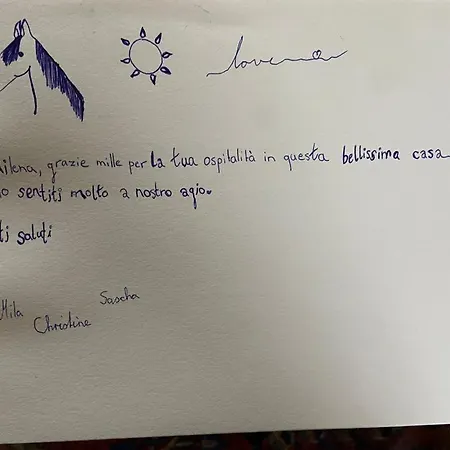 grazie mille per la tua ospitalità in questa bellissima casa
sentiti molto a nostro agio.
saluti
Sascha
Mila
Christine